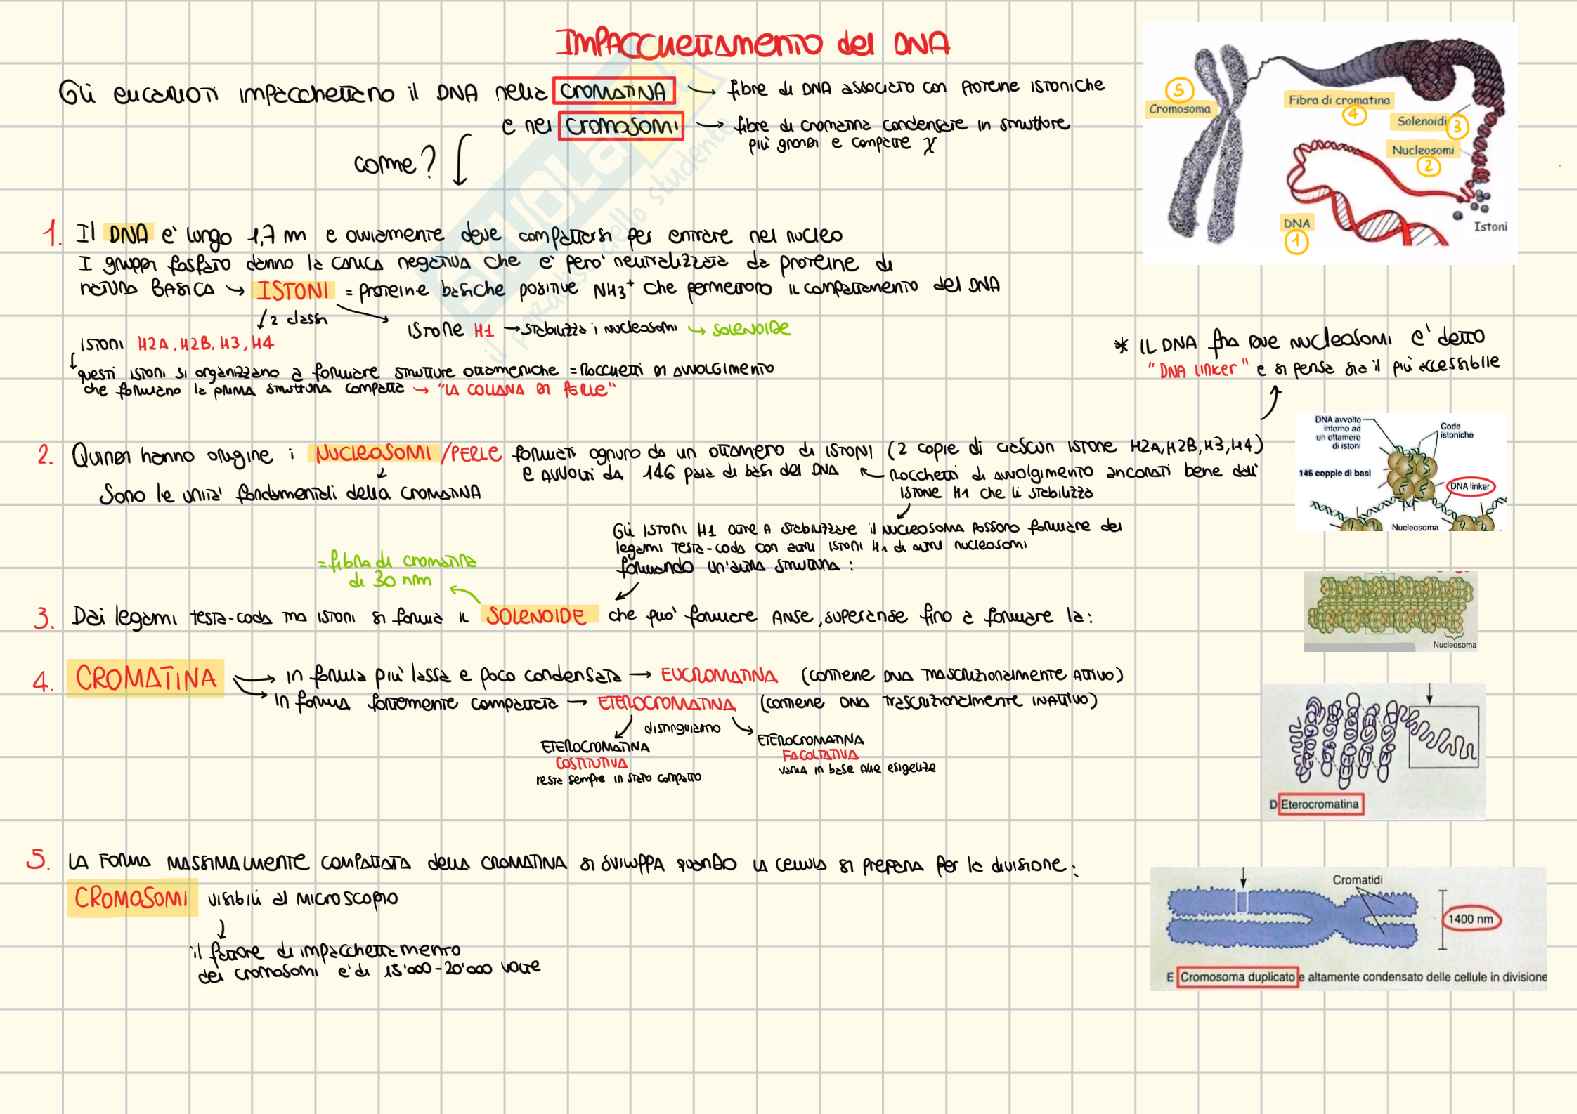 IMPACCHETTAMENTO del DNA
Gli eucarioti impacchettano il DNA nella CROMATINA → fibre di DNA associato con proteine istoniche
e nei CROMOSOMI → fibre di cromatina condensate in strutture
più grandi e compatte χ
come?
1. Il DNA e' lungo 1,7 m e ovviamente deve compattarsi per entrare nel nucleo
I gruppi fosfato danno la carica negativa che e' pero' neutralizzata da proteine di
natura BASICA → ISTONI = proteine basiche positive NH3+ che permettono il compattamento del DNA
2 classi
ISTONE H1 → stabilizza i nucleosomi → SOLENOIDE
ISTONI H2A, H2B, H3, H4
questi istoni si organizzano a formare strutture ottameriche = rocchetti di avvolgimento
che formano la prima struttura compatta → "LA COLLANA DI PERLE"
* IL DNA fra due nucleosomi e' detto
"DNA linker" e si pensa sia il più accessibile
2. Quindi hanno origine i NUCLEOSOMI/PERLE formati ognuno da un ottamero di ISTONI (2 copie di ciascun istone H2A, H2B, H3, H4)
e avvolti da 146 paia di basi del DNA ← Rocchetti di avvolgimento ancorati bene dall'
istone H1 che li stabilizza
Sono le unita' fondamentali della CROMATINA
Gli istoni H1 oltre a stabilizzare il nucleosoma possono formare dei
legami testa-coda con altri istoni H1 di altri nucleosomi
formando un'altra struttura:
= fibra di cromatina
di 30 nm
3. Dai legami testa-coda tra istoni si forma il SOLENOIDE che puo' formare ANSE, superanse fino a formare la:
4. CROMATINA → in forma piu' lassa e poco condensata → EUCROMATINA (contiene DNA TRASCRIZIONALMENTE ATTIVO)
→ in forma fortemente compattata → ETEROCROMATINA (contiene DNA TRASCRIZIONALMENTE INATTIVO)
distinguiamo
ETEROCROMATINA
COSTITUTIVA
resta sempre in stato compatto
ETEROCROMATINA
FACOLTATIVA
varia in base alle esigenze
5. LA FORMA MASSIMALMENTE COMPATTATA della CROMATINA si sviluppa quando la cellula si prepara per la divisione:
CROMOSOMI visibili al microscopio
il fattore di impacchettamento
dei cromosomi e' di 15'000-20'000 volte
5
Cromosoma
Fibra di cromatina
4
Solenoidi
3
Nucleosomi
2
DNA
1
Istoni
DNA avvolto
intorno ad
un ottamero
di istoni
Code
istoniche
146 coppie di basi
DNA linker
Nucleosoma
Nucleosoma
D Eterocromatina
Cromatidi
1400 nm
E Cromosoma duplicato e altamente condensato delle cellule in divisione